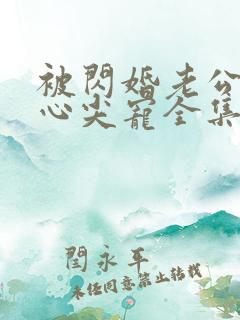 被閃婚老公
心尖寵全集
閆永平
未经同意禁止转载